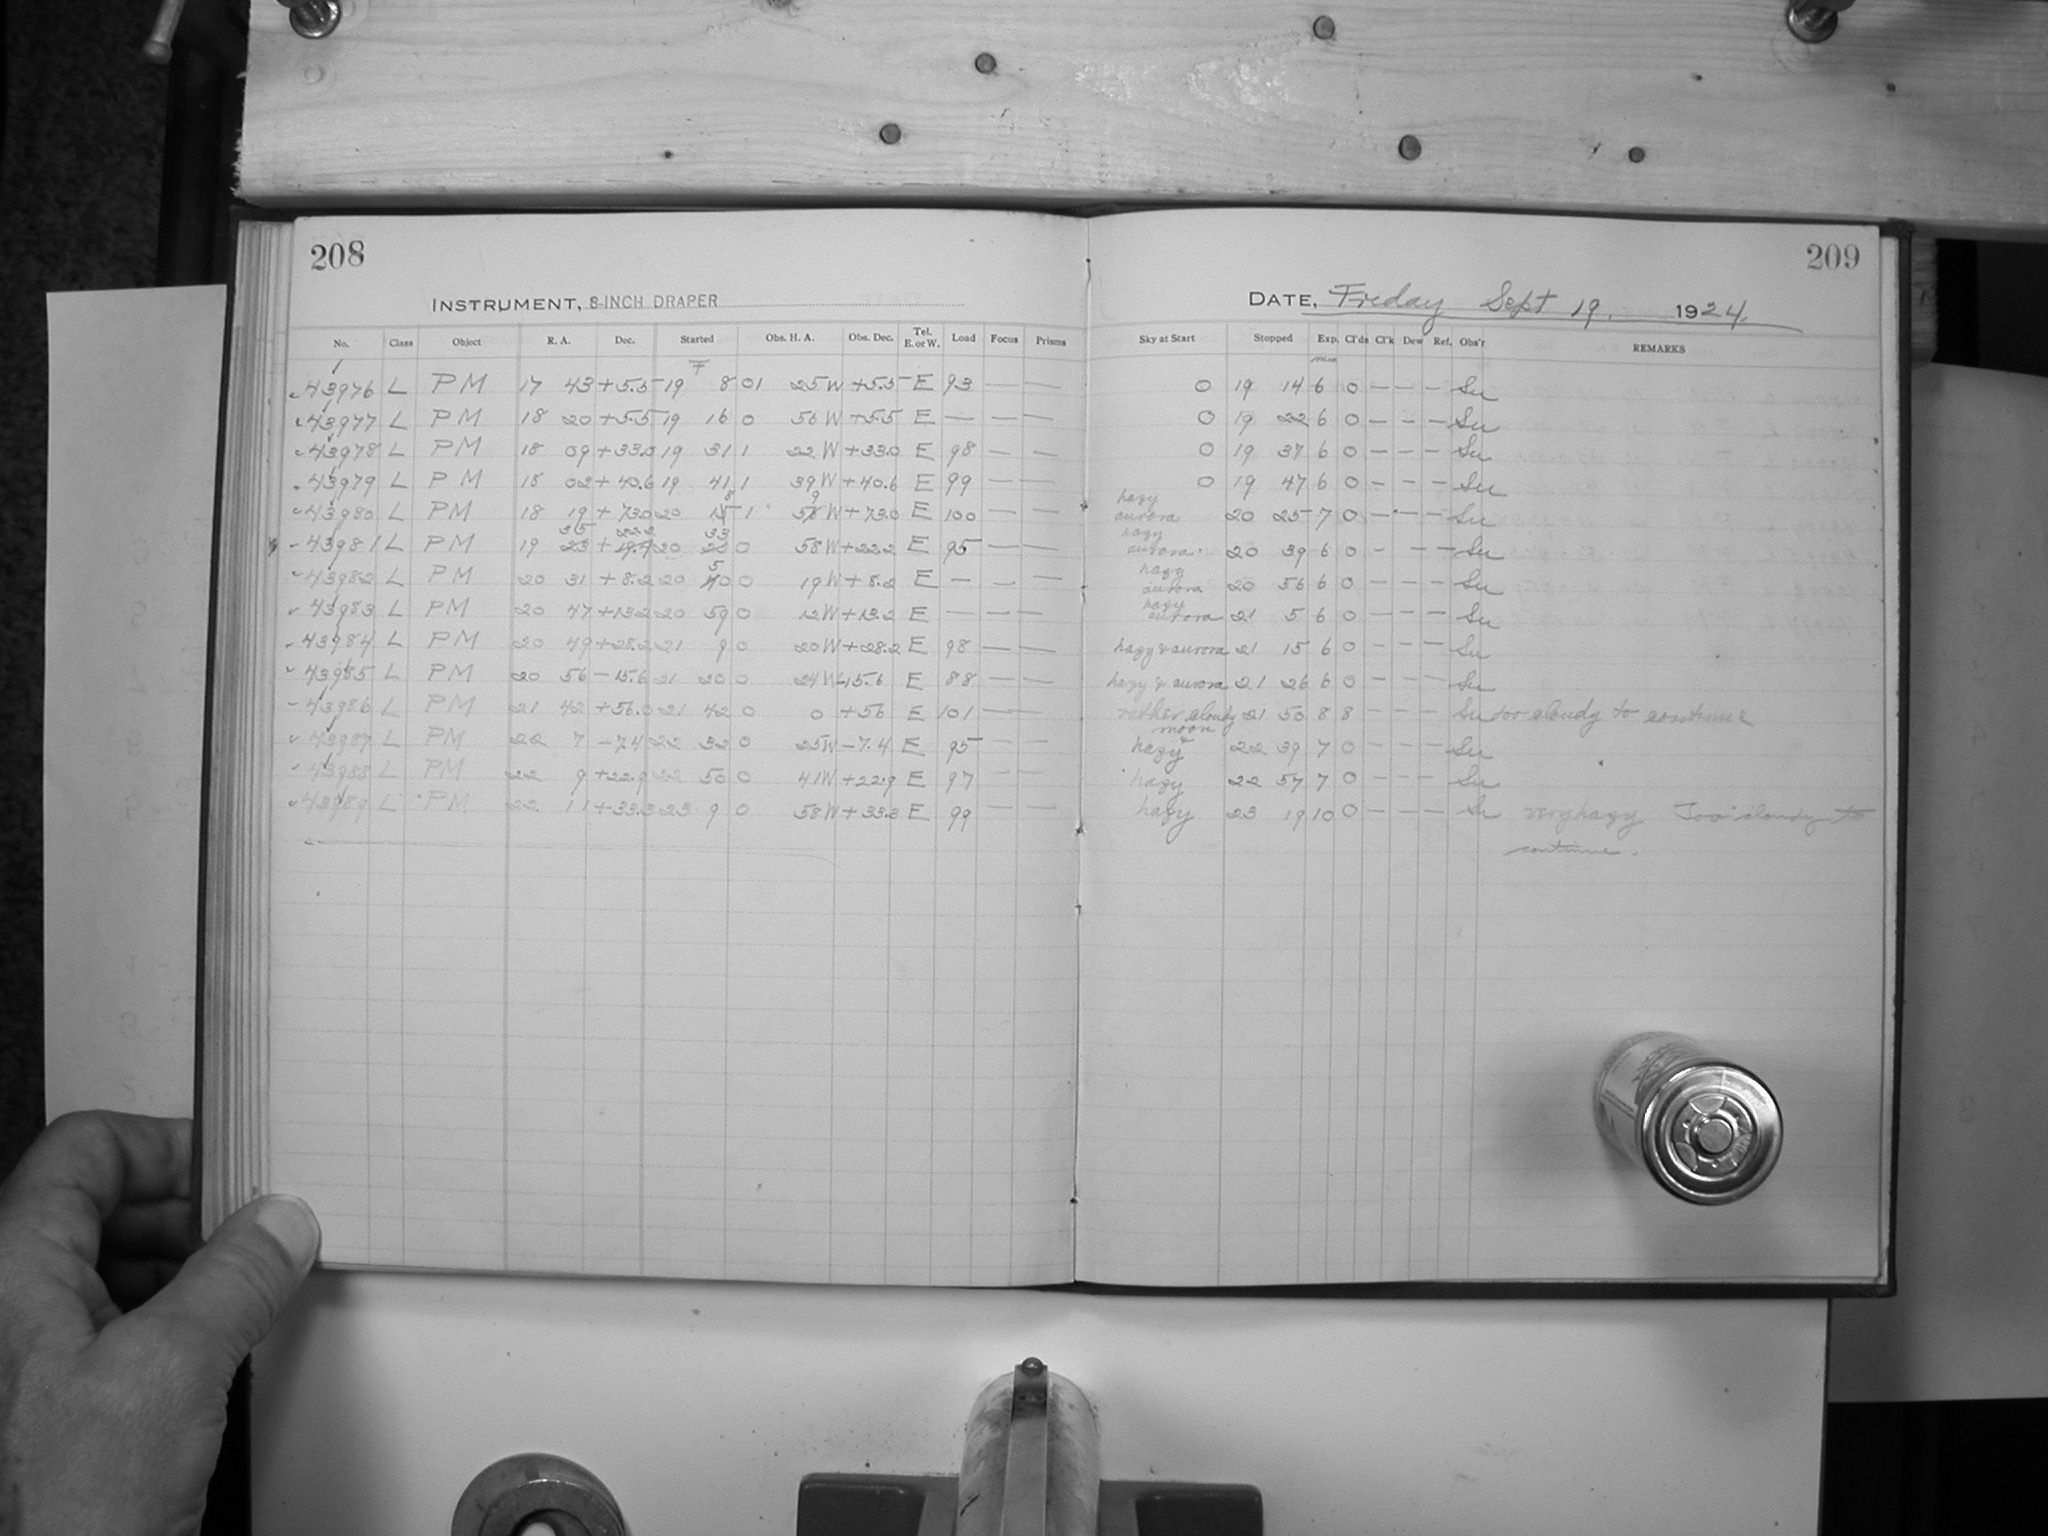 208
INSTRUMENT, 8-INCH DRAPER
No. Class Object R. A. Dec. Started Obs. H. A. Obs. Dec. Tel. E. or W. Load Focus Prisms
43976 L PM 17 43 +5.5 19 8 01 25 W +5.5 E 93 — —
43977 L PM 18 20 +5.5 19 16 0 56 W +5.5 E — — —
43978 L PM 18 09 +33.0 19 31 1 22 W +33.0 E 98 — —
43979 L PM 18 02 +40.6 19 41 1 39 W +40.6 E 99 — —
43980 L PM 18 19 +73.0 20 18 1 59 W +73.0 E 100 — —
43981 L PM 19 35 +22.2 20 33 0 58 W +22.2 E 95 — —
43982 L PM 20 31 +8.2 20 50 0 19 W +8.2 E — — —
43983 L PM 20 47 +13.2 20 59 0 12 W +13.2 E — — —
43984 L PM 20 49 +28.2 21 9 0 20 W +28.2 E 98 — —
43985 L PM 20 56 -15.6 21 20 0 24 W -15.6 E 88 — —
43986 L PM 21 42 +56.0 21 42 0 0 +56 E 101 — —
43987 L PM 22 7 -7.4 22 32 0 25 W -7.4 E 95 — —
43988 L PM 22 9 +22.9 22 50 0 41 W +22.9 E 97 — —
43989 L PM 22 11 +33.3 23 9 0 58 W +33.3 E 99 — —
209
DATE, Friday Sept 19. 1924
Sky at Start Stopped Exp. Cl'ds Cl'k Dew Ref. Obs'r REMARKS
min
0 19 14 6 0 — — — Su
0 19 22 6 0 — — — Su
0 19 37 6 0 — — — Su
0 19 47 6 0 — — — Su
hazy
aurora 20 25 7 0 — — — Su
hazy
aurora 20 39 6 0 — — — Su
hazy
aurora 20 56 6 0 — — — Su
hazy
aurora 21 5 6 0 — — — Su
hazy & aurora 21 15 6 0 — — — Su
hazy & aurora 21 26 6 0 — — — Su
rather cloudy 21 50 8 8 Su too cloudy to continue
moon &
hazy 22 39 7 0 — — — Su
hazy 22 57 7 0 — — — Su
hazy 23 19 10 0 — — — Su very hazy Too cloudy to
continue.